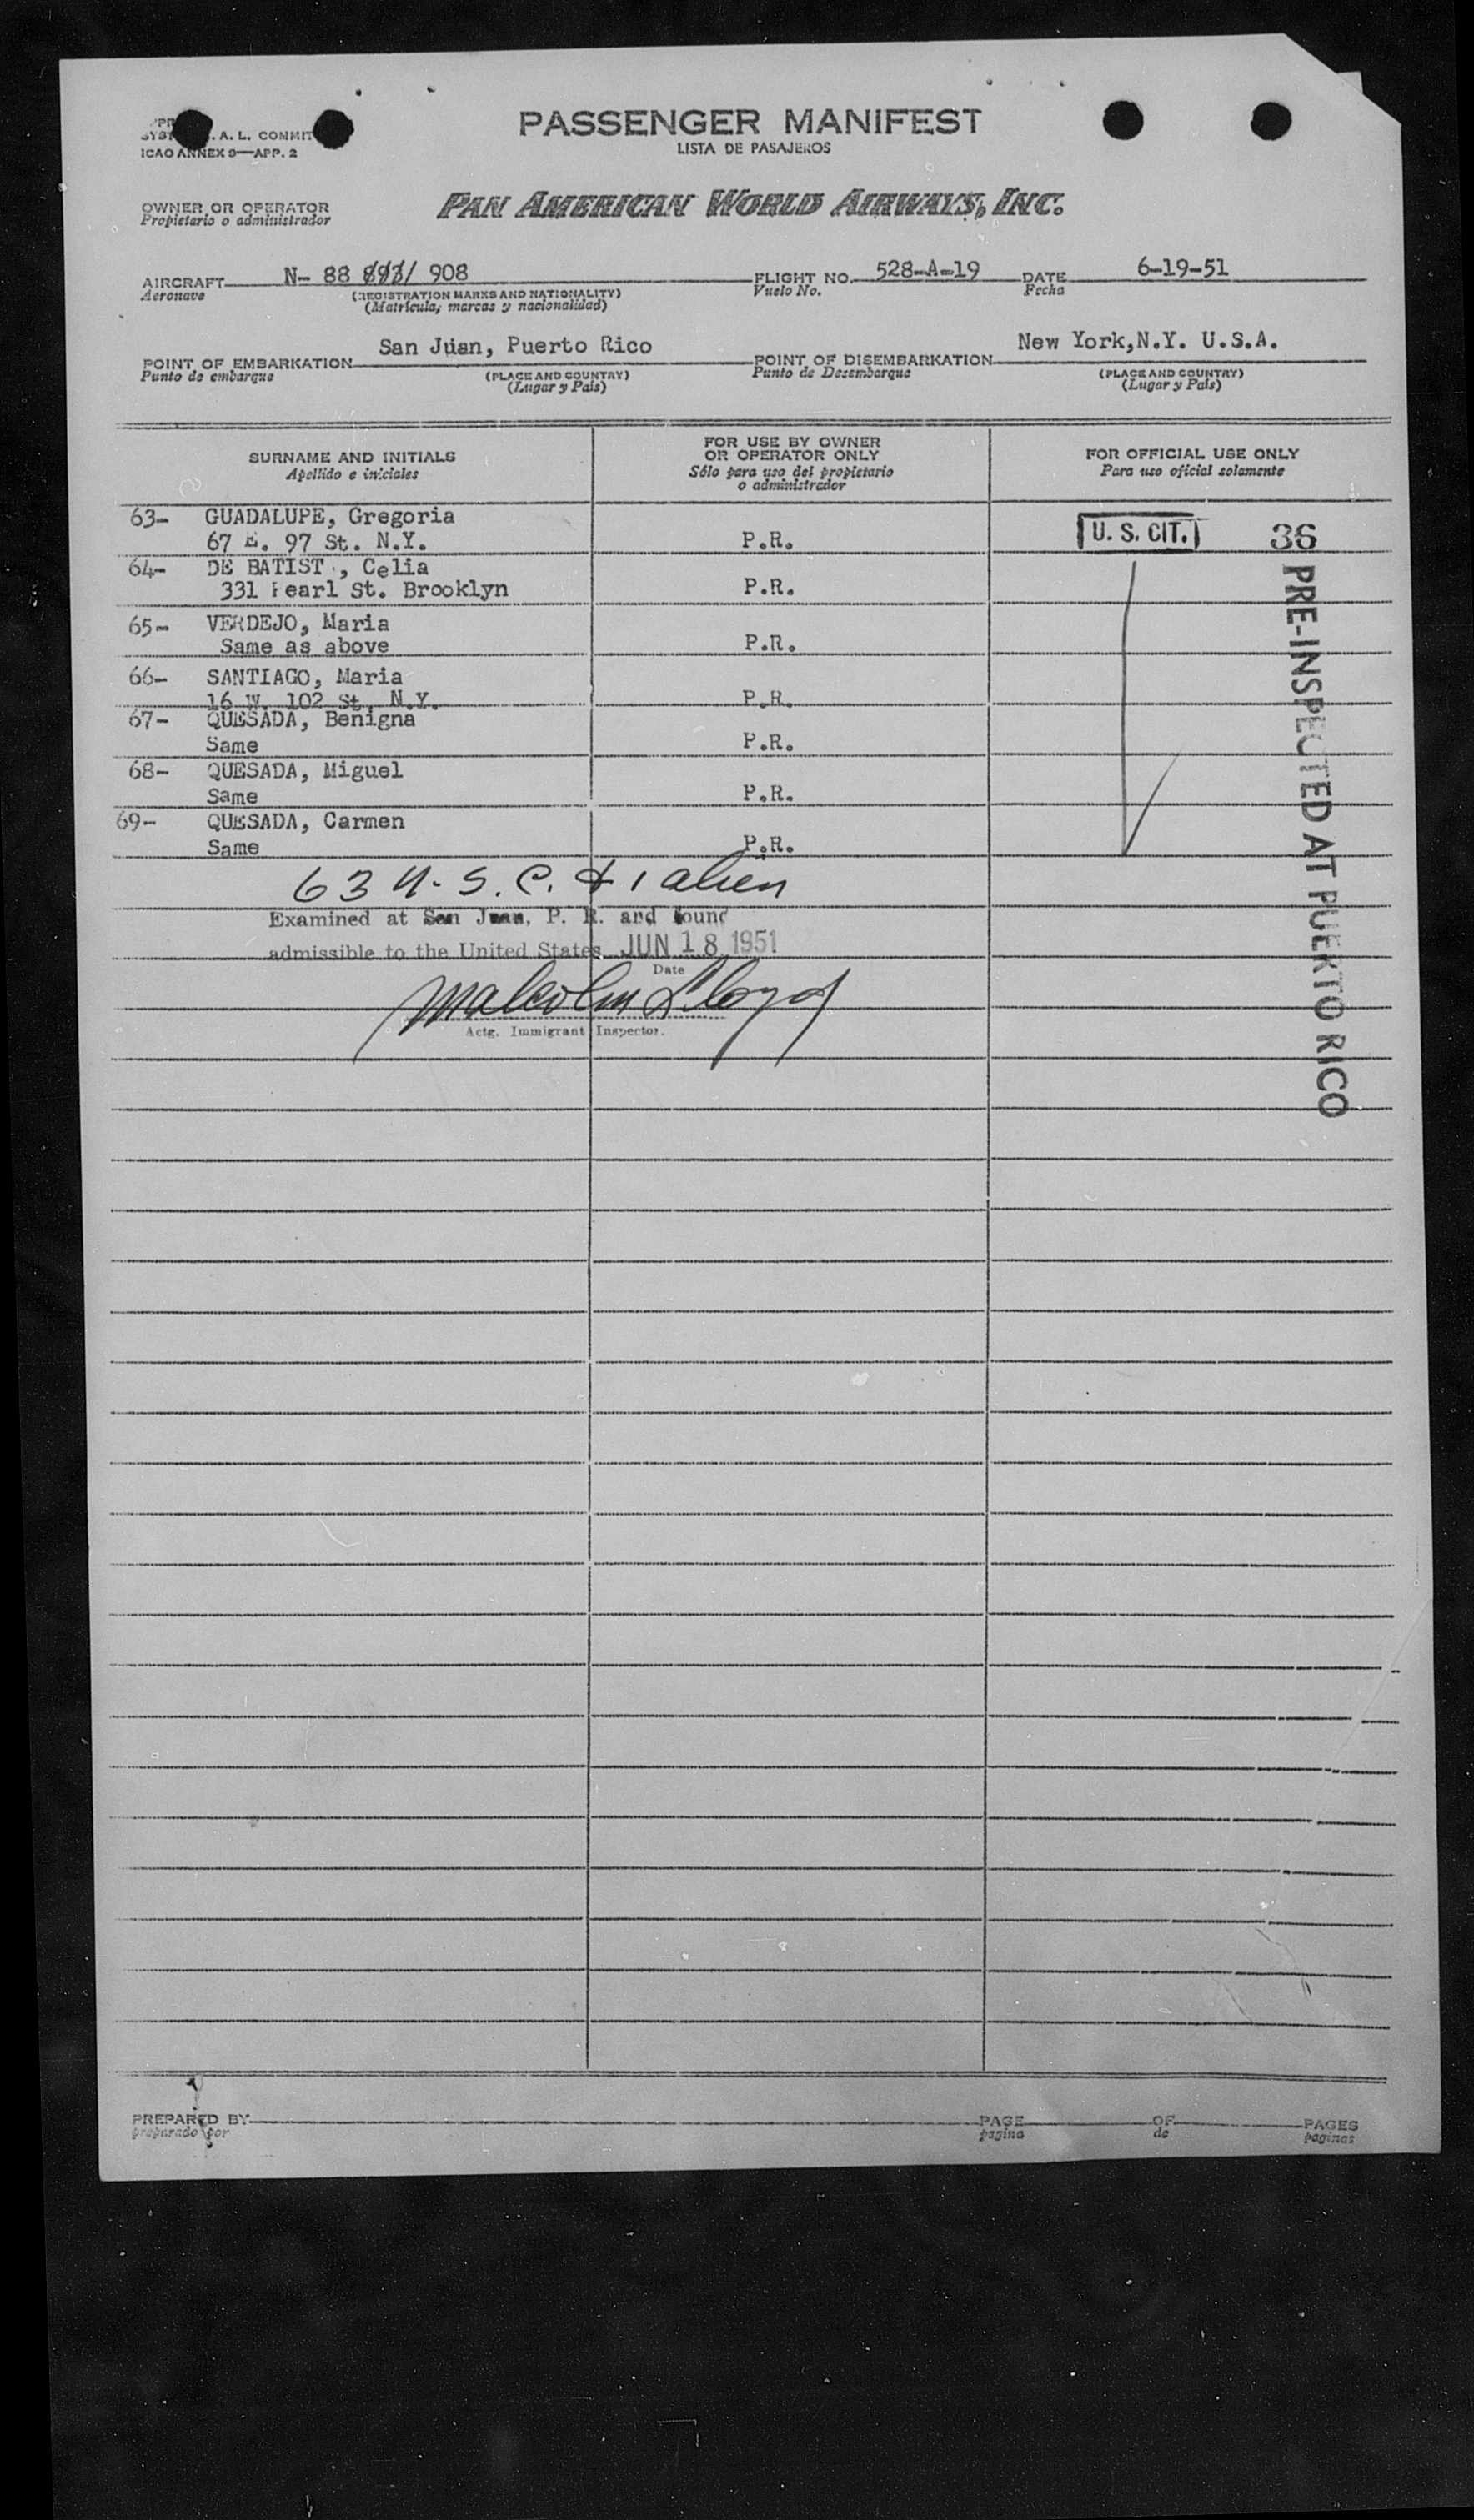 A. L. COMMIT
ICAO ANNEX 9—APP. 2
PASSENGER MANIFEST
LISTA DE PASAJEROS
OWNER OR OPERATOR
Propietario o administrador
PAN AMERICAN WORLD AIRWAYS, INC.
AIRCRAFT N- 88 908 FLIGHT NO. 528-A-19 DATE 6-19-51
Aeronave (REGISTRATION MARKS AND NATIONALITY) Vuelo No. Fecha
(Matrícula, marcas y nacionalidad)
POINT OF EMBARKATION San Juan, Puerto Rico POINT OF DISEMBARKATION New York,N.Y. U.S.A.
Punto de embarque (PLACE AND COUNTRY) Punto de Desembarque (PLACE AND COUNTRY)
(Lugar y País) (Lugar y País)
SURNAME AND INITIALS FOR USE BY OWNER OR OPERATOR ONLY FOR OFFICIAL USE ONLY
Apellido e iniciales Sólo para uso del propietario o administrador Para uso oficial solamente
63- GUADALUPE, Gregoria
67 E. 97 St. N.Y. P.R. U. S. CIT. 36
64- DE BATIST , Celia
331 Pearl St. Brooklyn P.R.
65- VERDEJO, Maria
Same as above P.R.
66- SANTIAGO, Maria
16 W. 102 St. N.Y. P.R.
67- QUESADA, Benigna
Same P.R.
68- QUESADA, Miguel
Same P.R.
69- QUESADA, Carmen
Same P.R.
PRE-INSPECTED AT PUERTO RICO
63 U. S. C. & 1 alien
Examined at San Juan, P. R. and found
admissible to the United States JUN 18 1951
Date
Malcolm Lloyd
Actg. Immigrant Inspector.
PREPARED BY PAGE OF PAGES
preparado por pagina de paginas